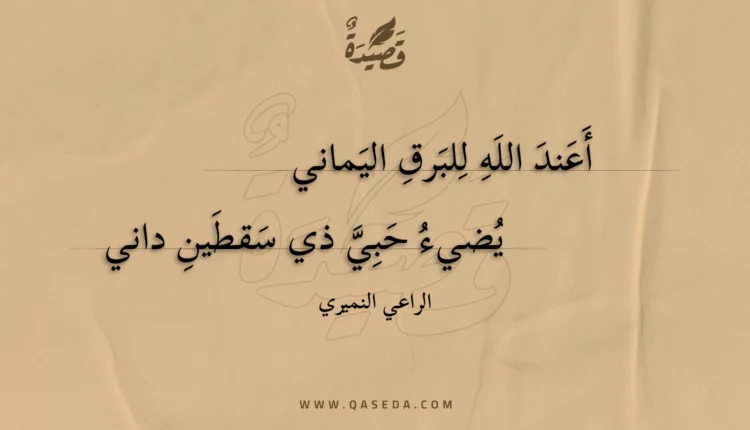 قَصِيدَةٌ
أَعَندَ اللَهِ لِلبَرقِ اليَماني
يُضيءُ حَبِيَّ ذي سَقطَينِ داني
الراعي النميري
WWW.QASEDA.COM